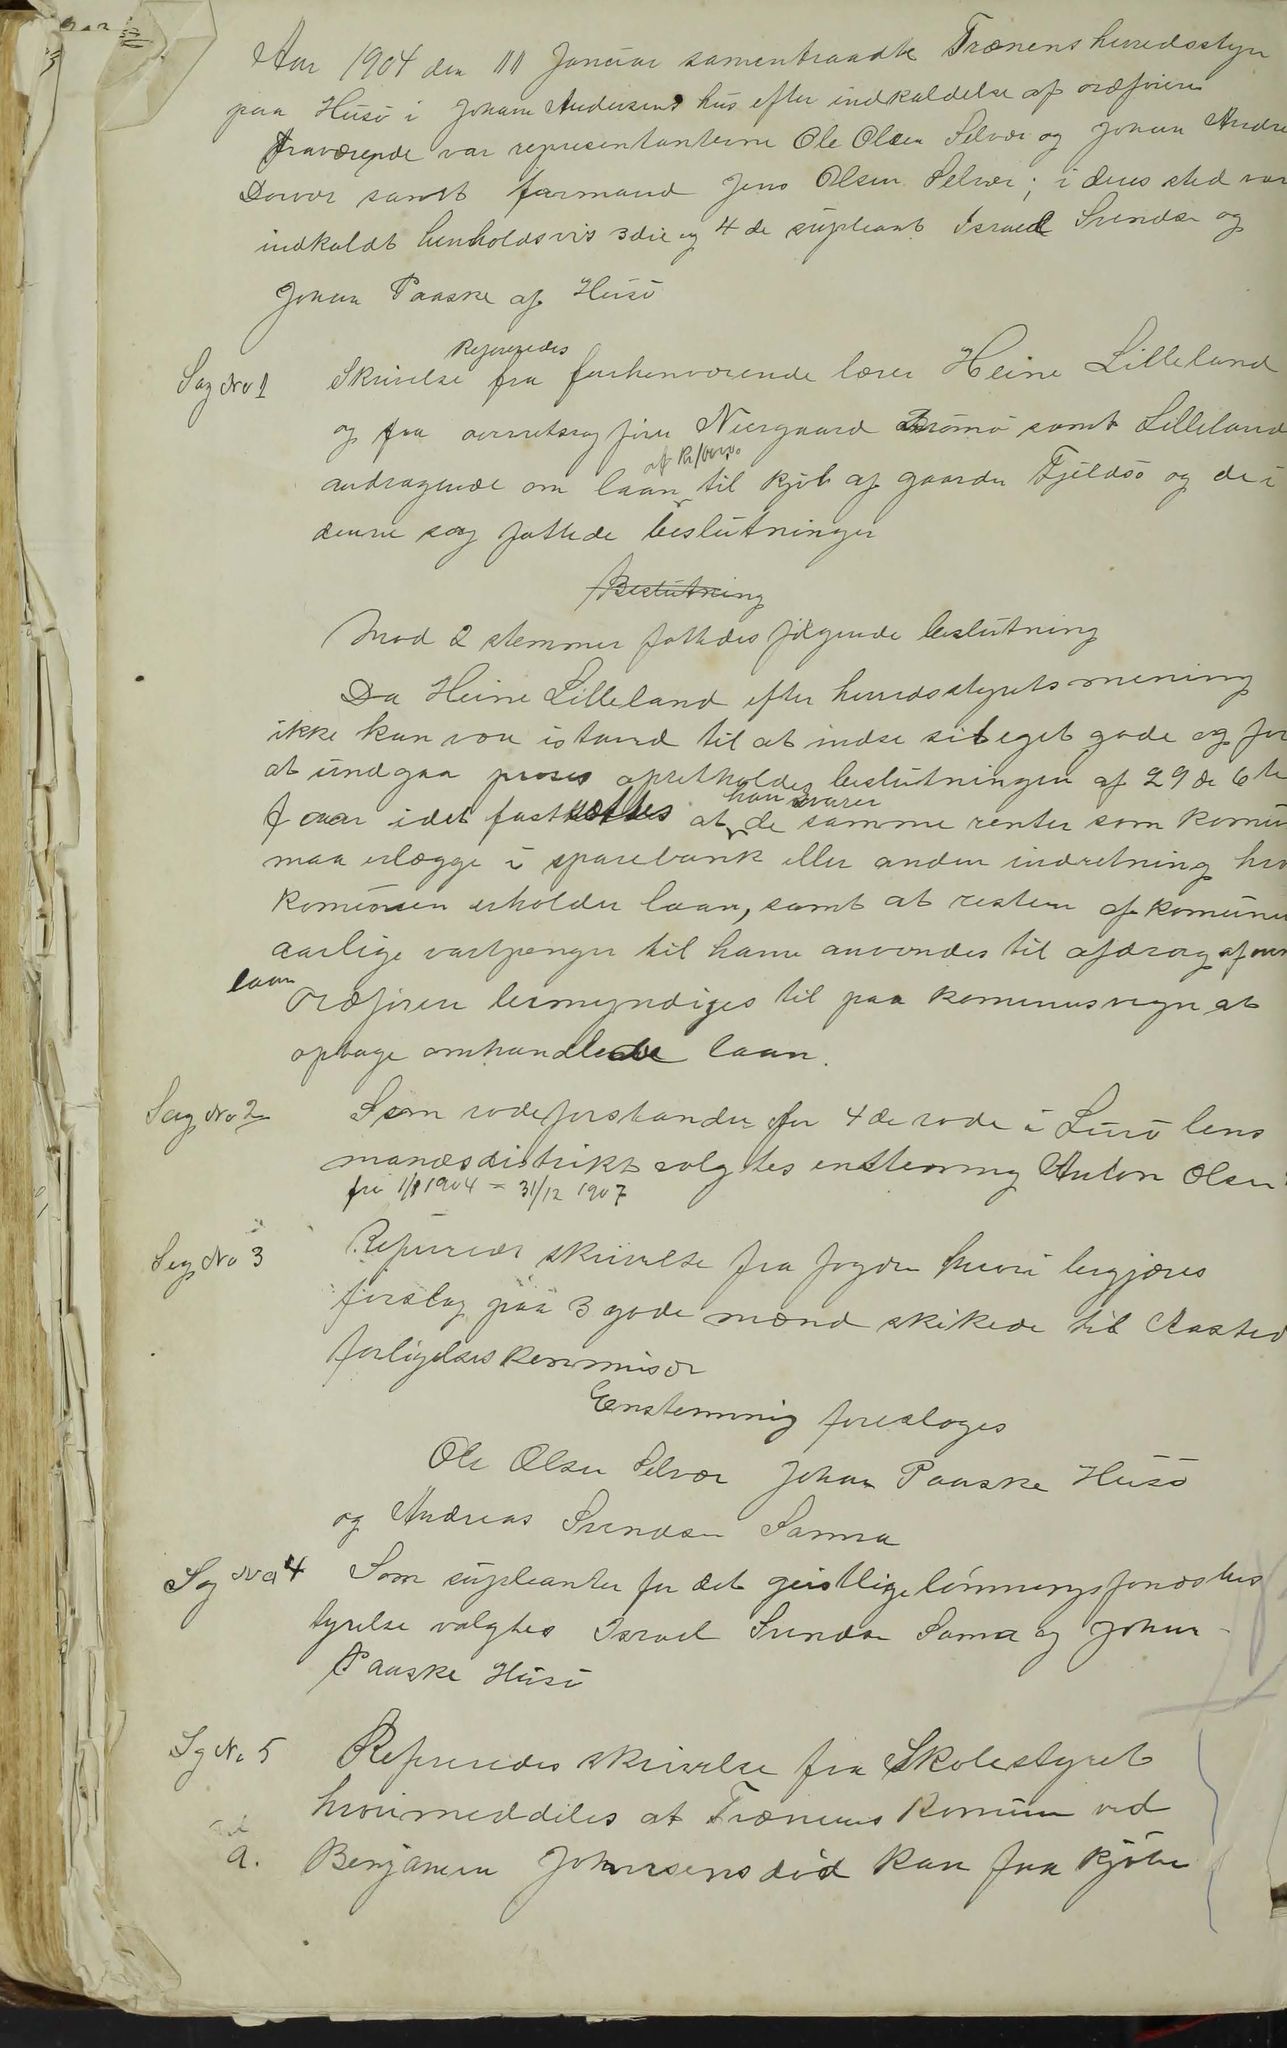 Aar 1904 den 11 Januar samentraadte Trænens herredsstyre
paa Husø i Johan Andersens hus efter indkaldelse af ordføreren
Fraværende var representanterne Ole Olsen Selvær og Johan Andre
Dørvær samt formand Jens Olsen Selvær; i deres sted var
indkaldt henholdsvis 3die og 4de supleant Israel Svendsen og
Johan Paaske af Husø
Refereredes
Sag No 1 Skrivelse fra forhenværende lærer Heine Lilleland
og fra overretssagfører Niergaard Bromø samt Lilleland
af Kr
andragende om laan til kjøb af gaarden Fjeldsø og de i
denne sag fattede beslutninger
Beslutning
Mod 2 stemmer fattedes følgende beslutning
Da Heine Lilleland efter herredsstyrets mening
ikke kan være istand til at indse sit eget gode og for
at undgaa proses opretholdes beslutningen af 29 de 6te
han svarer
f aar idet fastsættes at de samme renter som komu
maa erlægge i sparebank eller anden indretning hvo
komunen erholder laan, samt at resten af komune
aarlige vartpenger til ham anvendes til afdrag af
laan
Ordføren bemyndiges til paa komunes vegne at
optage omhandlede laan.
Sag No 2 Som rodeforstander for 4de rode i Lurø lens
mandsdistrikt valgtes enstemmig Anton Olsen
fra 1/1 1904 = 31/12 1907
Sag No 3 Refereredes skrivelse fra fogden hvori begjæres
forslag paa 3 gode mænd skikede til Aasted
forligelseskommisær
Enstemmig foresloges
Ole Olsen Selvær Johan Paaske Husø
og Andreas Svendsen Sanna
Sag No 4 Som supleanter for det geistlige lønningsfondsbes
tyrelse valgtes Israel Svendsen Sanna og Johan
Paaske Husø
Sag No 5 Refereredes skrivelse fra Skolestyret
hvori meddeles at Trænens Komune ved
a. Benjamin Johansens død kan faa kjøbe